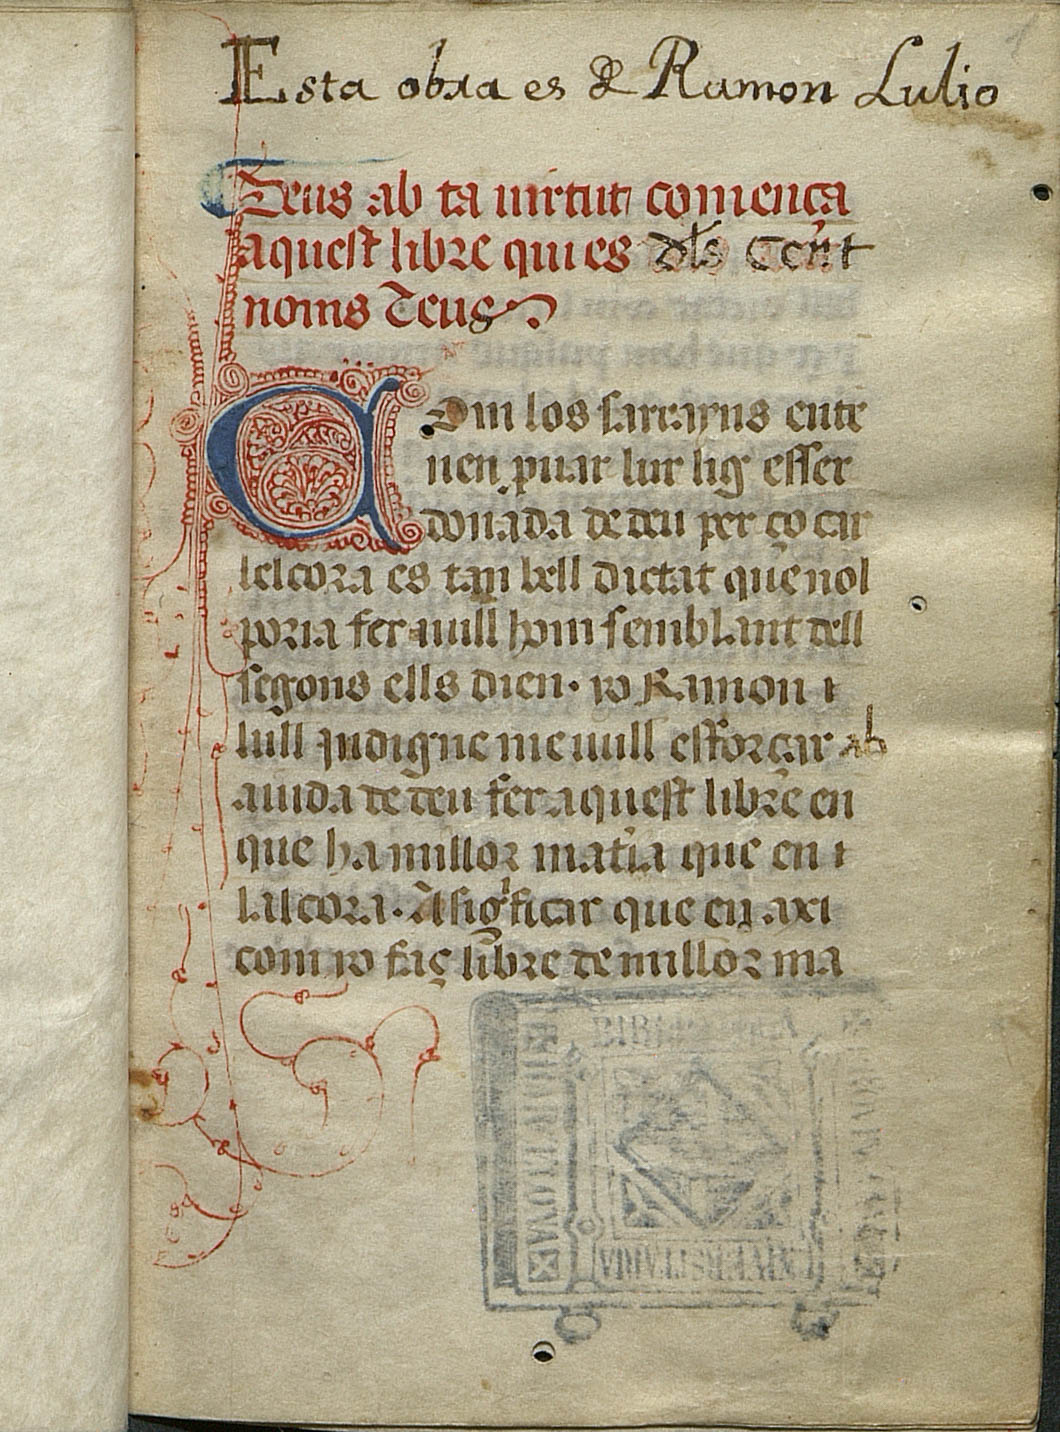 Esta obra es de Ramon Lulio
Deus ab ta uirtut comença
aquest libre qui es dls Cent
noms deus
Com los sarrayns ente
nen puar lur lig esser
donada de deu per ço car
lelcora es tan bell dictat que nol
poria fer null hom semblant dell
segons ells dien. yo Ramon
lull indigne me uull efforçar ab
aiuda de deu fer aquest libre en
que ha millor matia que en
lalcora. A sigficar que en axi
com yo faç libre de millor ma
BIBLIOTECA
UNIVERSITARIA